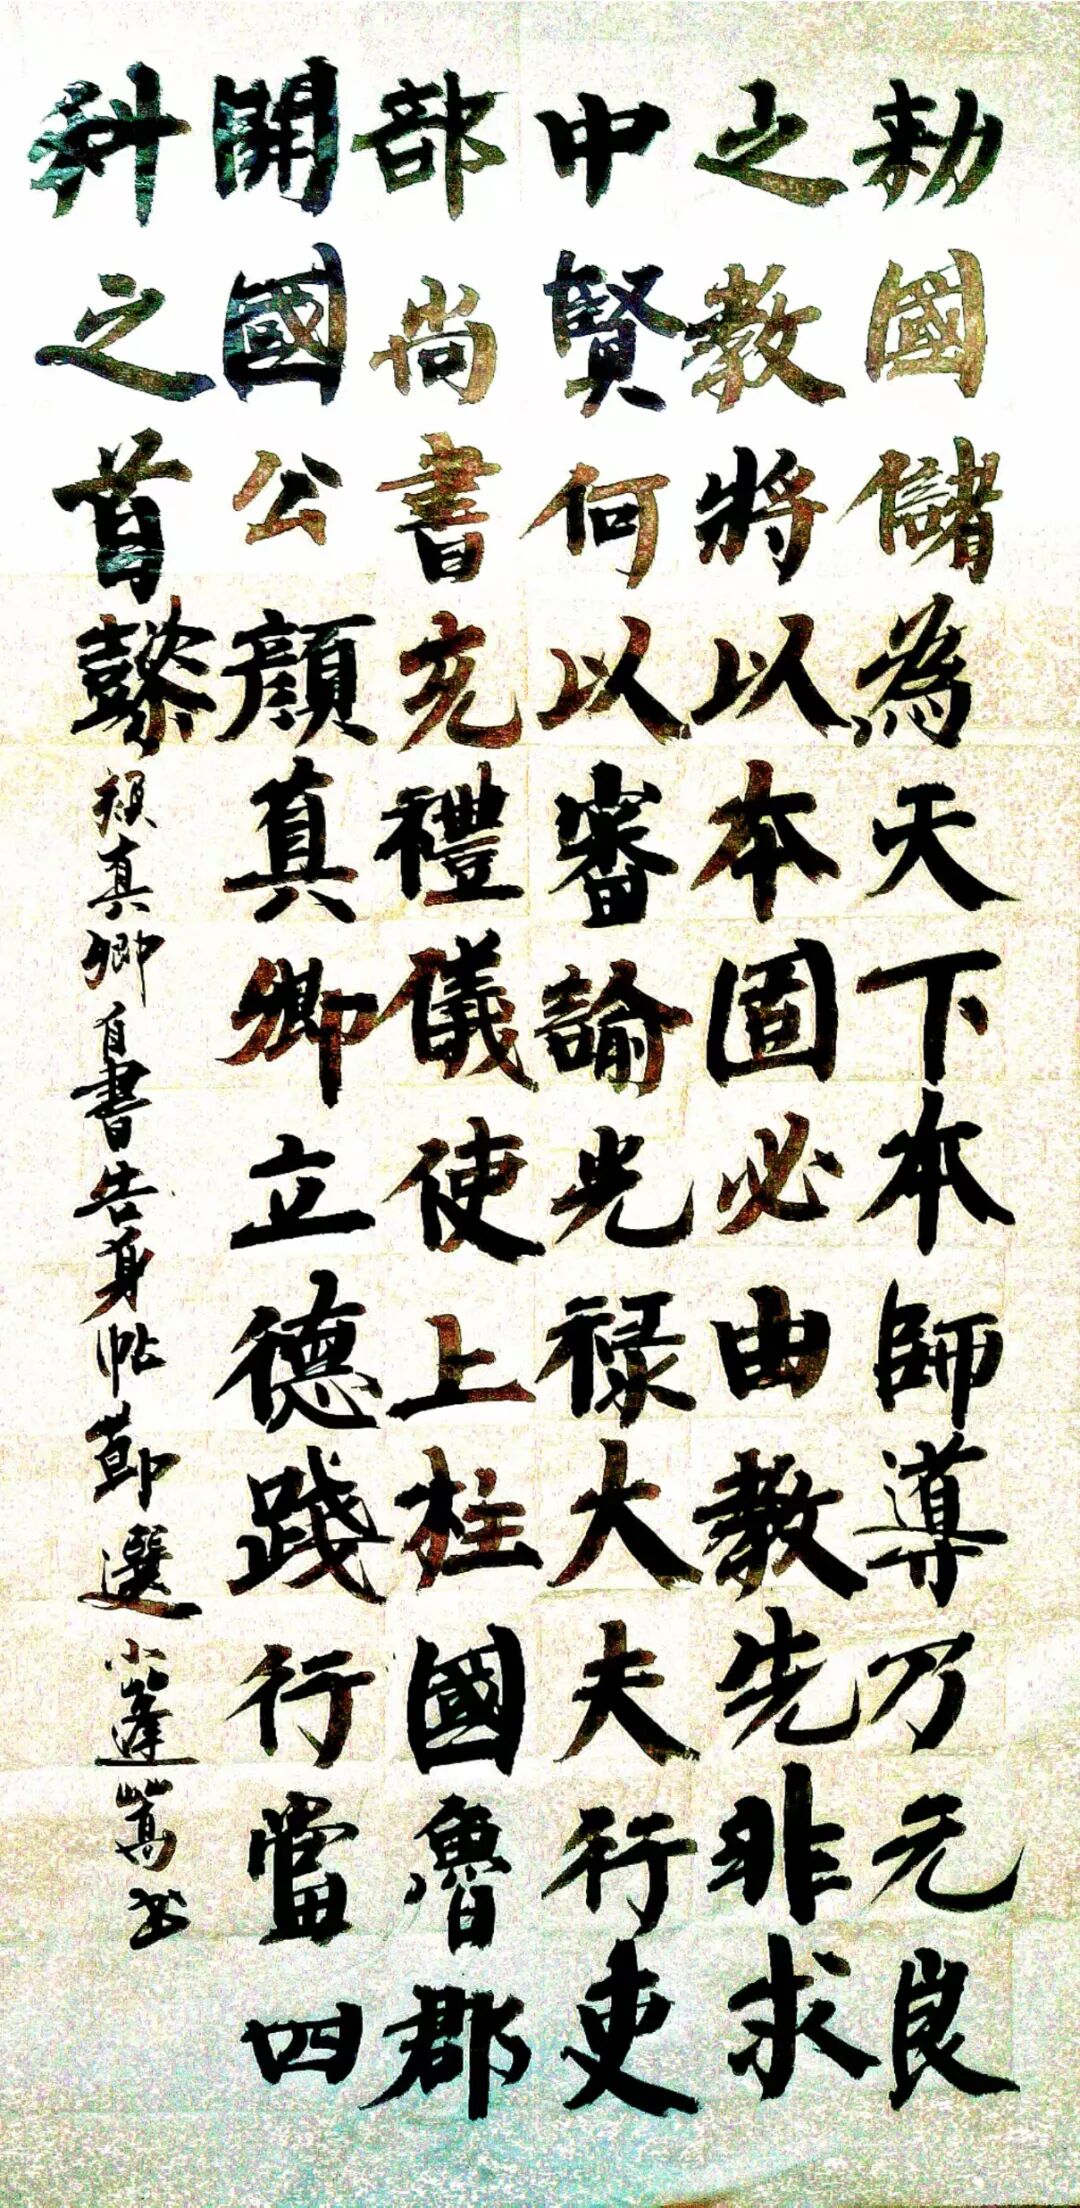 勅國儲為天下本師導乃元良
之教將以本固必由教先非求
中賢何以審諭光禄大夫行吏
部尚書充禮儀使上柱國魯郡
開國公顏真卿立德踐行當四
科之首懿
頽真卿自書告身帖節選 小蓬蒿书